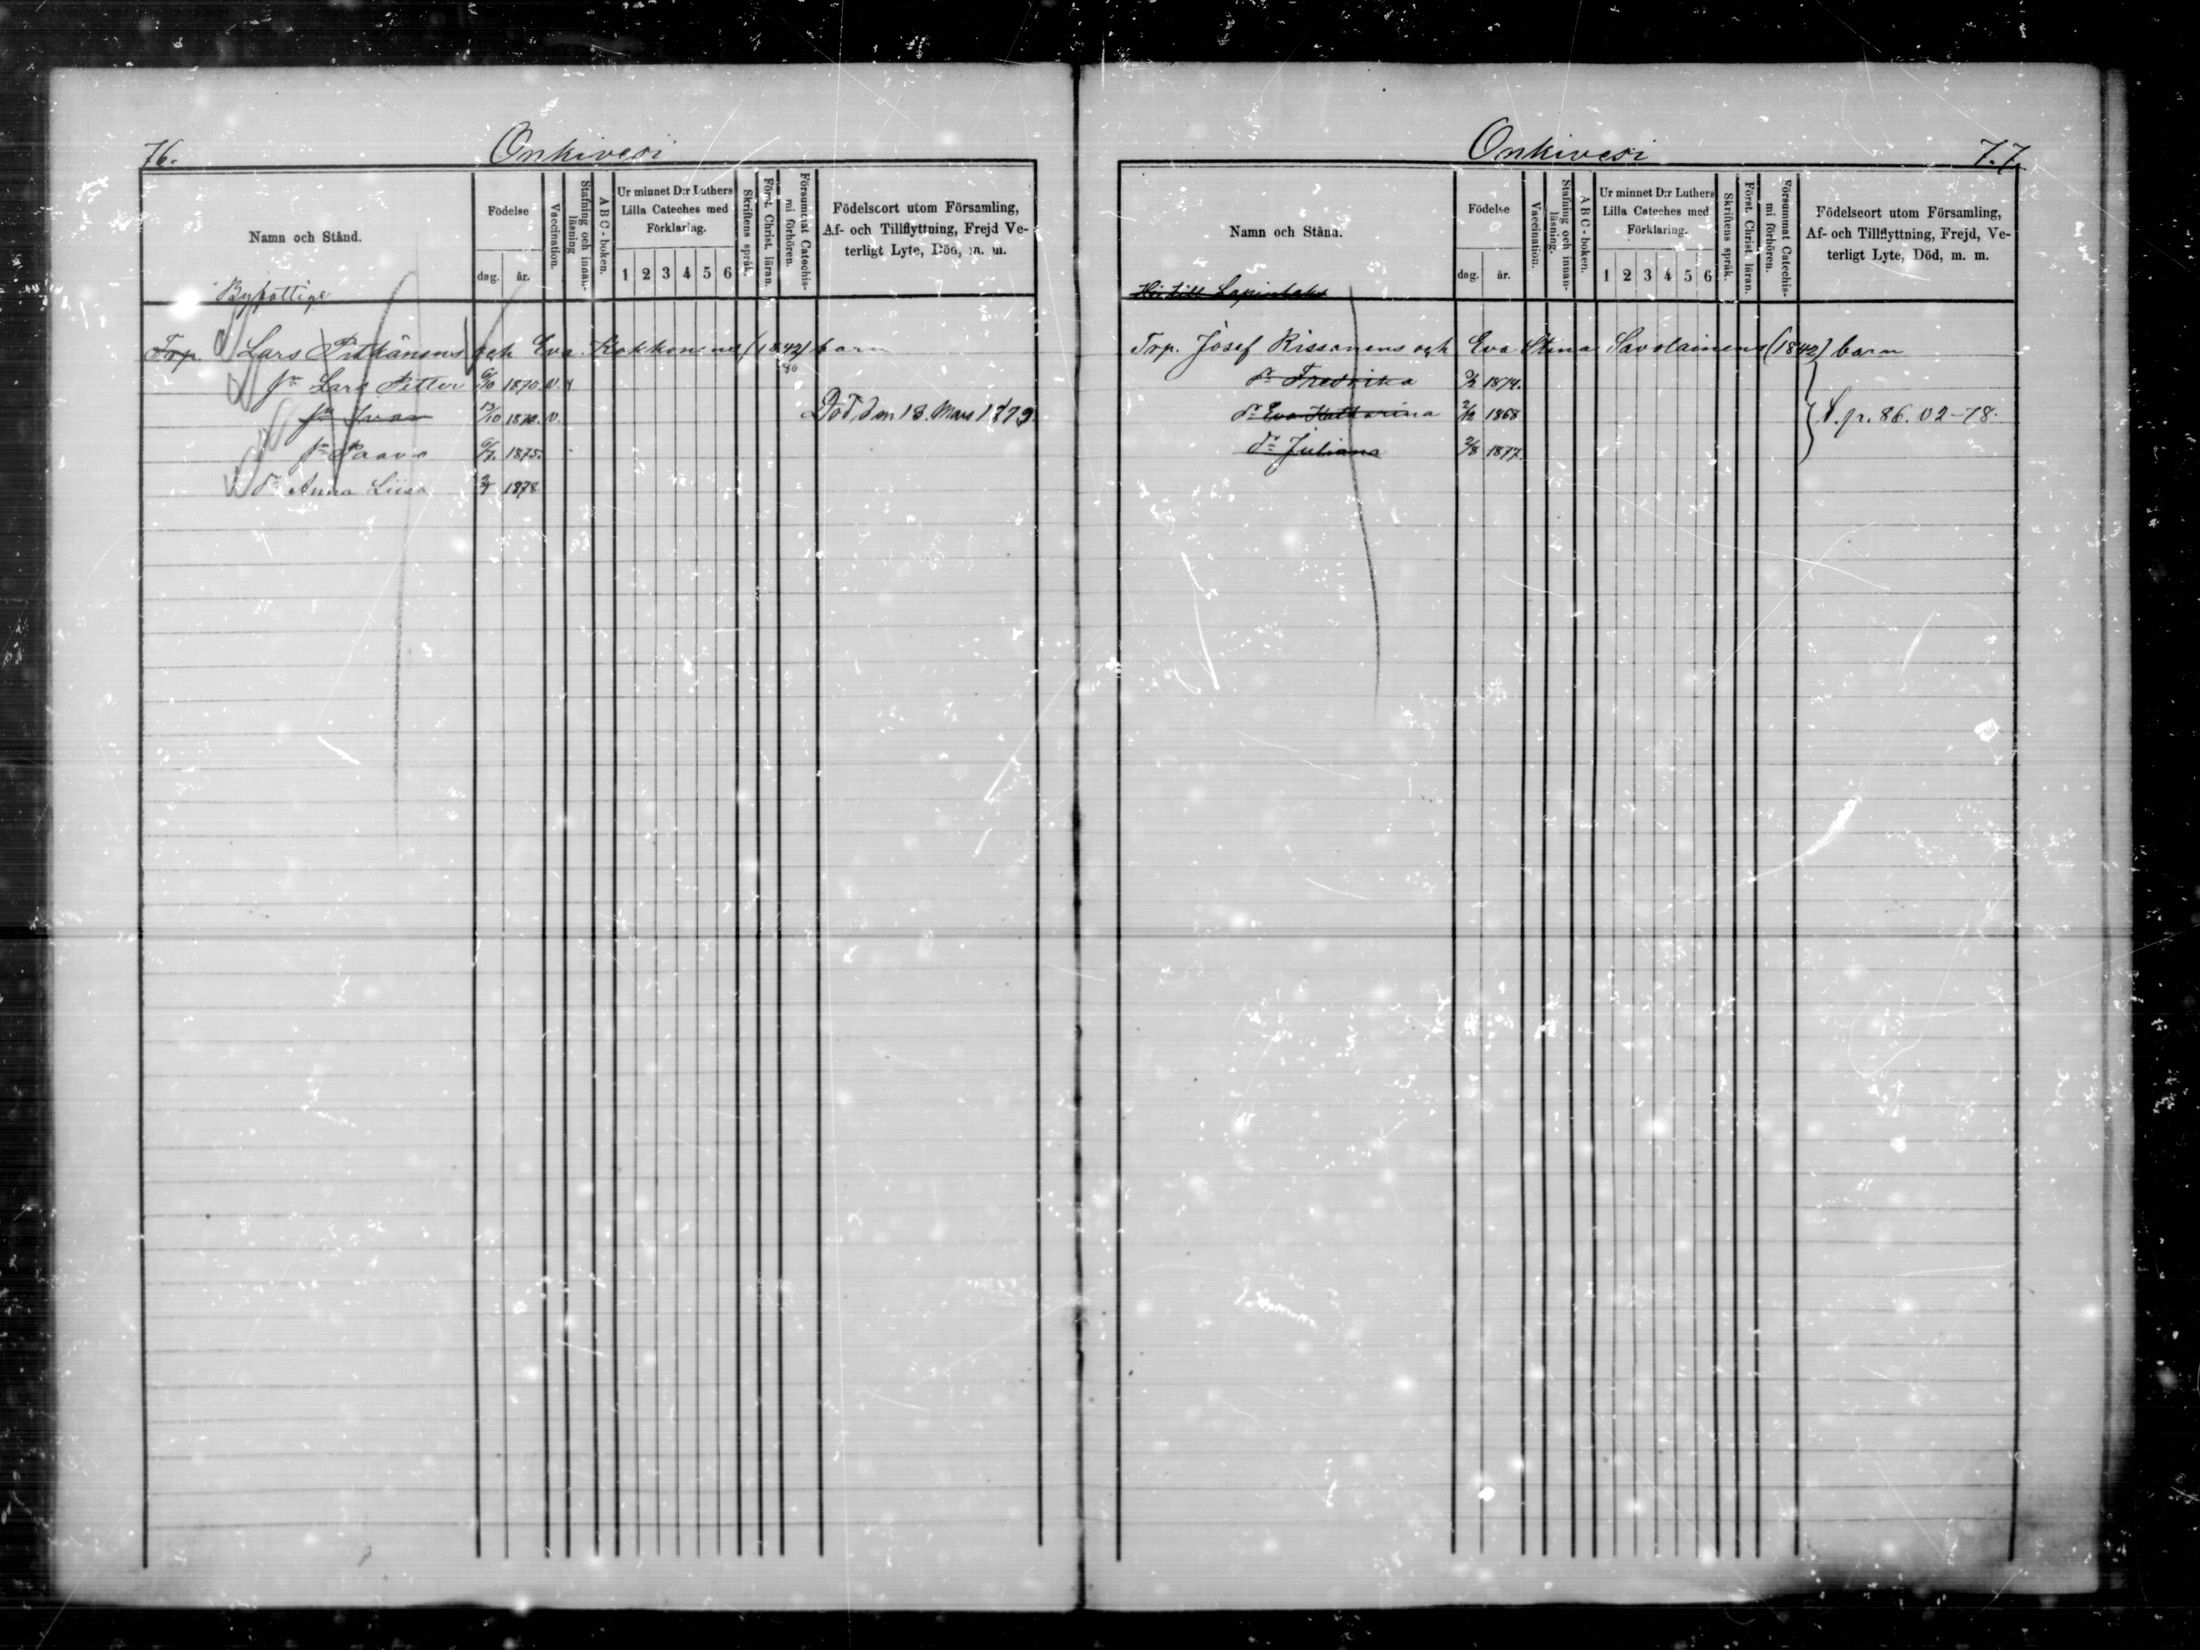 76.
Onkivesi
Namn och Stånd.
Födelse
dag. år.
Vaccination.
Stafning och innan-läsning
A B C - boken.
Ur minnet D:r Luthers Lilla Cateches med Förklaring.
1 2 3 4 5 6
Skriftens språk.
Först. Christ. läran.
Försummat Catechis-mi förhören.
Födelseort utom Församling, Af- och Tillflyttning, Frejd Ve-terligt Lyte, Död, m. m.
Torp. Lars Pitkänens och Eva Kokkonens (1842) barn
80
sn Lars Petter 6/10 1870. v. x
sn Ivar 13/10 1870. v. Död den 13. Mars 1879.
sn Paavo 6/7. 1875.
dr Anna Liisa 1878
Onkivesi
77.
Namn och Stånd.
Födelse
dag. år.
Vaccination.
Stafning och innan-läsning.
A B C - boken.
Ur minnet D:r Luthers Lilla Cateches med Förklaring.
1 2 3 4 5 6
Skriftens språk.
Först. Christ. läran.
Försummat Catechis-mi förhören.
Födelseort utom Församling, Af- och Tillflyttning, Frejd, Ve-terligt Lyte, Död, m. m.
Torp. Josef Rissanens och Eva Stina Savolainens (1842) barn
dr Fredrika 1874.
dr Eva Katharina 2/12 1868
dr Juliana 2/8 1877.
pr. 86. 02-78.